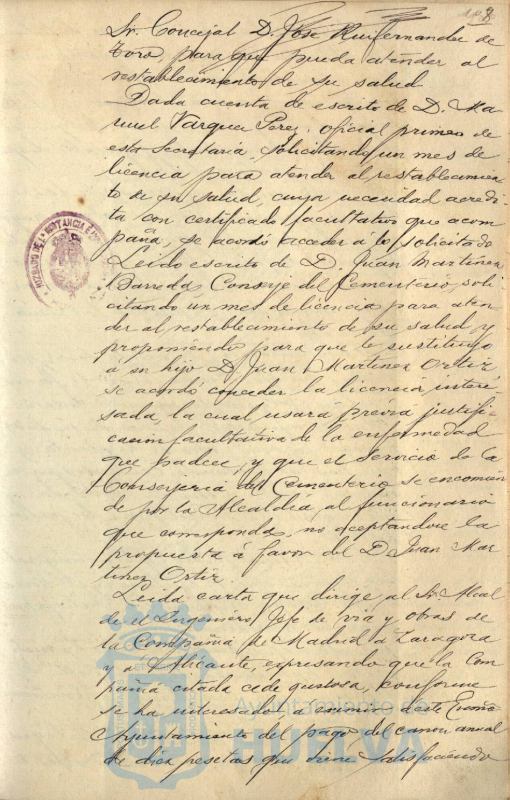 8
Sr. Concejal D. José Ruifernandez de
Toro, para que pueda atender al
restablecimiento de su salud
Dada cuenta de escrito de D. Ma
nuel Vazquez Perez, oficial primero de
esta Secretaría, solicitando un mes de
licencia para atender al restablecimien
to de su salud, cuya necesidad acredi
ta con certificado facultativo que acom
paña, se acordó acceder á lo solicitado
Leido escrito de D. Juan Martinez
Barreda, Conserje del Cementerio, soli
citando un mes de licencia para aten
der al restablecimiento de su salud, y
proponiendo para que le sustituya
á su hijo D. Juan Martinez Ortiz,
se acordó conceder la licencia intere
sada, la cual usará previa justifi
cacion facultativa de la enfermedad
que padece, y que el servicio de la
Conserjeria del Cementerio se encomien
de por la Alcaldía, al funcionario
que corresponda, no aceptandose la
propuesta á favor del D. Juan Mar
tinez Ortiz.
Leida carta que dirige al Sr. Alcal
de el Ingeniero Jefe de via y obras de
la Compañia de Madrid á Zaragoza
y á Alicante, expresando que la Com
pañia citada cede gustosa, conforme
se ha interesado á eximir á este Excmo
Ayuntamiento del pago del canon anual
de diez pesetas que viene satisfaciendo
JUZGADO DE 1ª INSTANCIA E
Ayuntamiento de
HUELVA